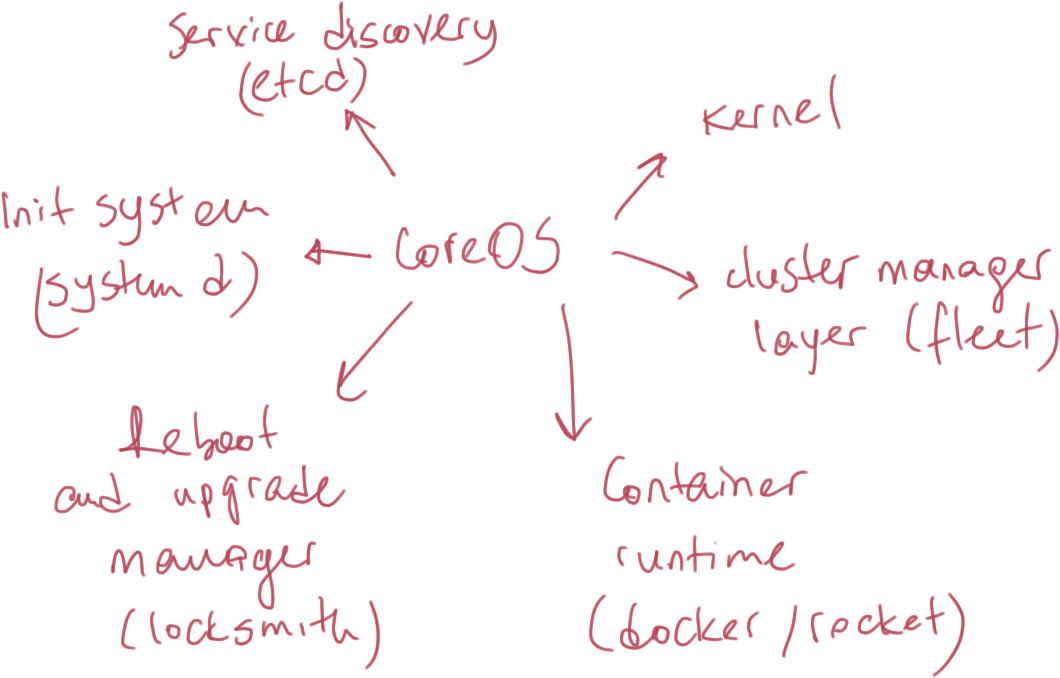 Service discovery
(etcd)
Kernel
Init system
(system d)
CoreOS
cluster manager
layer (fleet)
Reboot
and upgrade
manager
(locksmith)
Container
runtime
(docker/rocket)